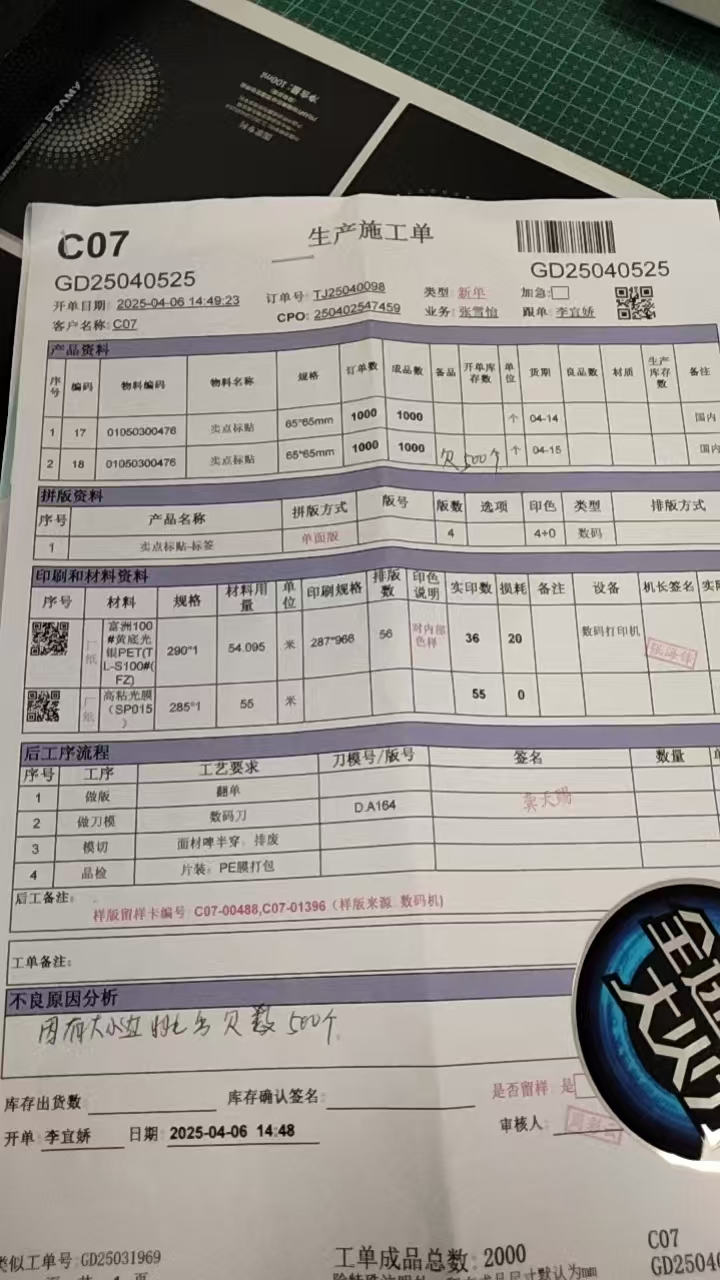 PRAMY
净含量:100ml
C07
生产施工单
GD25040525
GD25040525
开单日期: 2025-04-06 14:49:23
订单号: TJ25040098
类型: 新单
加急:
客户名称: C07
CPO: 250402547459
业务: 张雪怡
跟单: 李宜娇
产品资料
序号 编码 物料编码 物料名称 规格 订单数 成品数 备品 开单库存数 单位 货期 良品数 材质 生产库存数 备注
1 17 01050300476 卖点标贴 65*65mm 1000 1000 个 04-14 国内
2 18 01050300476 卖点标贴 65*65mm 1000 1000 欠500个 个 04-15 国内
拼版资料
序号 产品名称 拼版方式 版号 版数 选项 印色 类型 排版方式
1 卖点标贴-标签 单面版 4 4+0 数码
印刷和材料资料
序号 材料 规格 材料用量 单位 印刷规格 排版数 印色说明 实印数 损耗 备注 设备 机长签名
厂纸 富洲100#黄底光银PET(TL-S100#(FZ) 290*1 54.095 米 287*966 56 对内部色样 36 20 数码打印机
厂纸 高粘光膜(SP015) 285*1 55 米 55 0
后工序流程
序号 工序 工艺要求 刀模号/版号 签名 数量
1 做版 翻单
2 做刀模 数码刀 D.A164
3 模切 面材啤半穿，排废
4 品检 片装；PE膜打包
后工备注:
样版留样卡编号 C07-00488,C07-01396（样版来源 数码机)
工单备注:
不良原因分析
欠数500个
库存出货数
库存确认签名:
是否留样: 是
开单 李宜娇
日期: 2025-04-06 14:48
审核人:
类似工单号:GD25031969
工单成品总数: 2000
C07